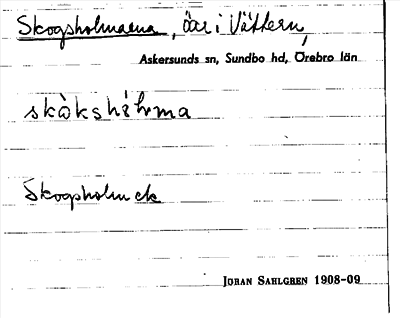 Skogsholmarna, öar i Vättern,
Askersunds sn, Sundbo hd, Örebro län
skòkshålma
Skogsholm ek
JOHAN SAHLGREN 1908-09